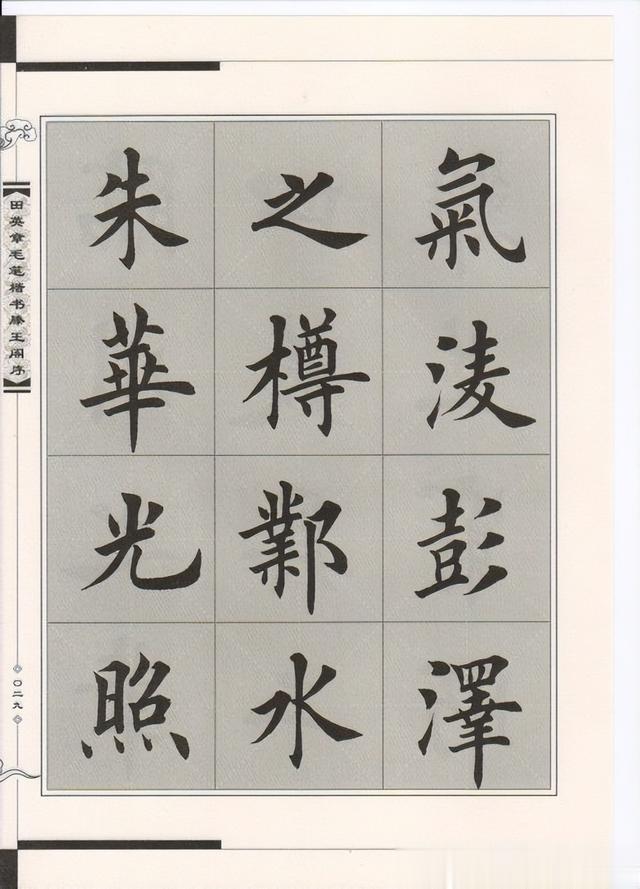 氣淩彭澤
之樽鄴水
朱華光照
田英章毛笔楷书滕王阁序
〇二九